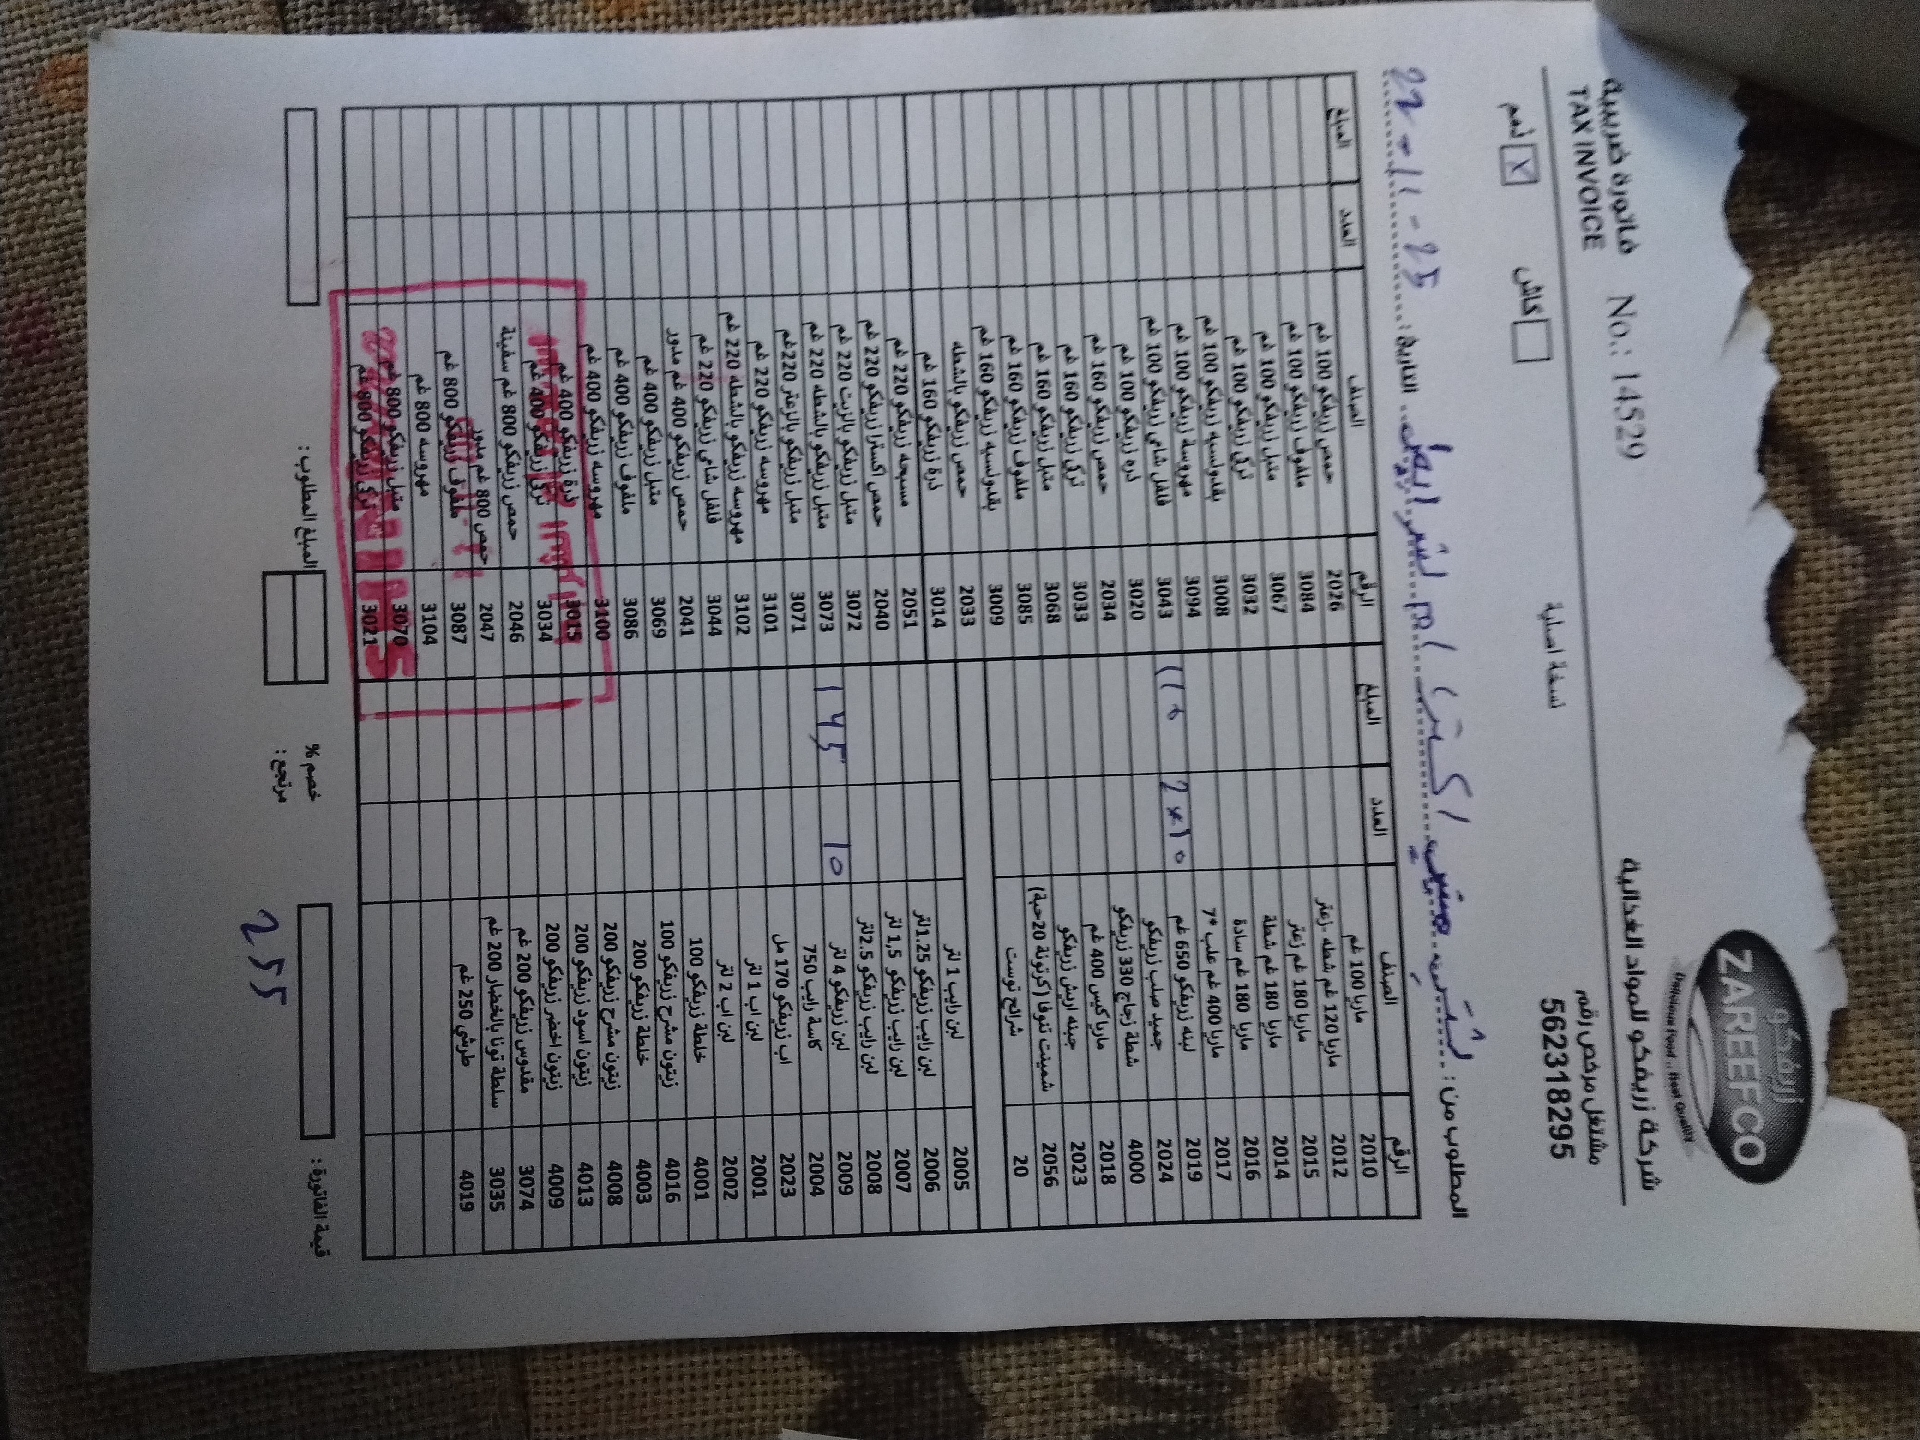 زريفكو
ZAREEFCO
Delicious Food .. Best Quality
شركة زريفكو للمواد الغذائية
مشتغل مرخص رقم
562318295
فاتورة ضريبية No.: 14529
TAX INVOICE
نسخة اصلية
كاش
ذمم X
المطلوب من: التاريخ: 22-11-25
الرقم الصنف العدد المبلغ
2010 ماريا 100 غم
2012 ماريا 120 غم شطه .زعتر
2015 ماريا 180 غم زعتر
2014 ماريا 180 غم شطة
2016 ماريا 180 غم سادة
2017 ماريا 400 غم علب *7
2019 لبنه زريفكو 650 غم 2*10 110
2024 جميد صلب زريفكو
4000 شطة زجاج 330 زريفكو
2018 ماريا كيس 400 غم
2023 جبنه اريش زريفكو
2056 شمينت تنوفا (كرتونة 20حبة)
20 شرائح توست
2005 لبن رايب 1 لتر
2006 لبن رايب زريفكو 1.25لتر
2007 لبن رايب زريفكو 1,5 لتر
2008 لبن رايب زريفكو 2.5لتر
2009 لبن زريفكو 4 لتر 10 145
2004 كاسة رايب 750
2023 اب زريفكو 170 مل
2001 لبن اب 1 لتر
2002 لبن اب 2 لتر
4001 خلطة زريفكو 100
4016 زيتون مشرح زريفكو 100
4003 خلطة زريفكو 200
4008 زيتون مشرح زريفكو 200
4013 زيتون اسود زريفكو 200
4009 زيتون اخضر زريفكو 200
3074 مقدوس زريفكو 200 غم
3035 سلطة تونا بالخضار 200 غم
4019 طرشي 250 غم
الرقم الصنف العدد المبلغ
2026 حمص زريفكو 100 غم
3084 ملفوف زريفكو 100 غم
3067 متبل زريفكو 100 غم
3032 تركي زريفكو 100 غم
3008 بقدونسيه زريفكو 100 غم
3094 مهروسة زريفكو 100 غم
3043 فلفل شامي زريفكو 100 غم
3020 ذره زريفكو 100 غم
2034 حمص زريفكو 160 غم
3033 تركي زريفكو 160 غم
3068 متبل زريفكو 160 غم
3085 ملفوف زريفكو 160 غم
3009 بقدونسيه زريفكو 160 غم
2033 حمص زريفكو بالشطه
3014 ذرة زريفكو 160 غم
2051 مسبحه زريفكو 220 غم
2040 حمص اكسترا زريفكو 220 غم
3072 متبل زريفكو بالزيت 220 غم
3073 متبل زريفكو بالشطه 220 غم
3071 متبل زريفكو بالزعتر 220غم
3101 مهروسه زريفكو 220 غم
3102 مهروسه زريفكو بالشطه 220 غم
3044 فلفل شامي زريفكو 220 غم
2041 حمص زريفكو 400 غم مدور
3069 متبل زريفكو 400 غم
3086 ملفوف زريفكو 400 غم
3100 مهروسه زريفكو 400 غم
3015 ذرة زريفكو 400 غم
3034 تركي زريفكو 400 غم
2046 حمص زريفكو 800 غم سفينة
2047 حمص 800 غم مدور
3087 ملفوف زريفكو 800 غم
3104 مهروسه 800 غم
3070 متبل زريفكو 800 غم
3021 تركي زريفكو 800 غم
قيمة الفاتورة : خصم % المبلغ المطلوب :
مرتجع :
255